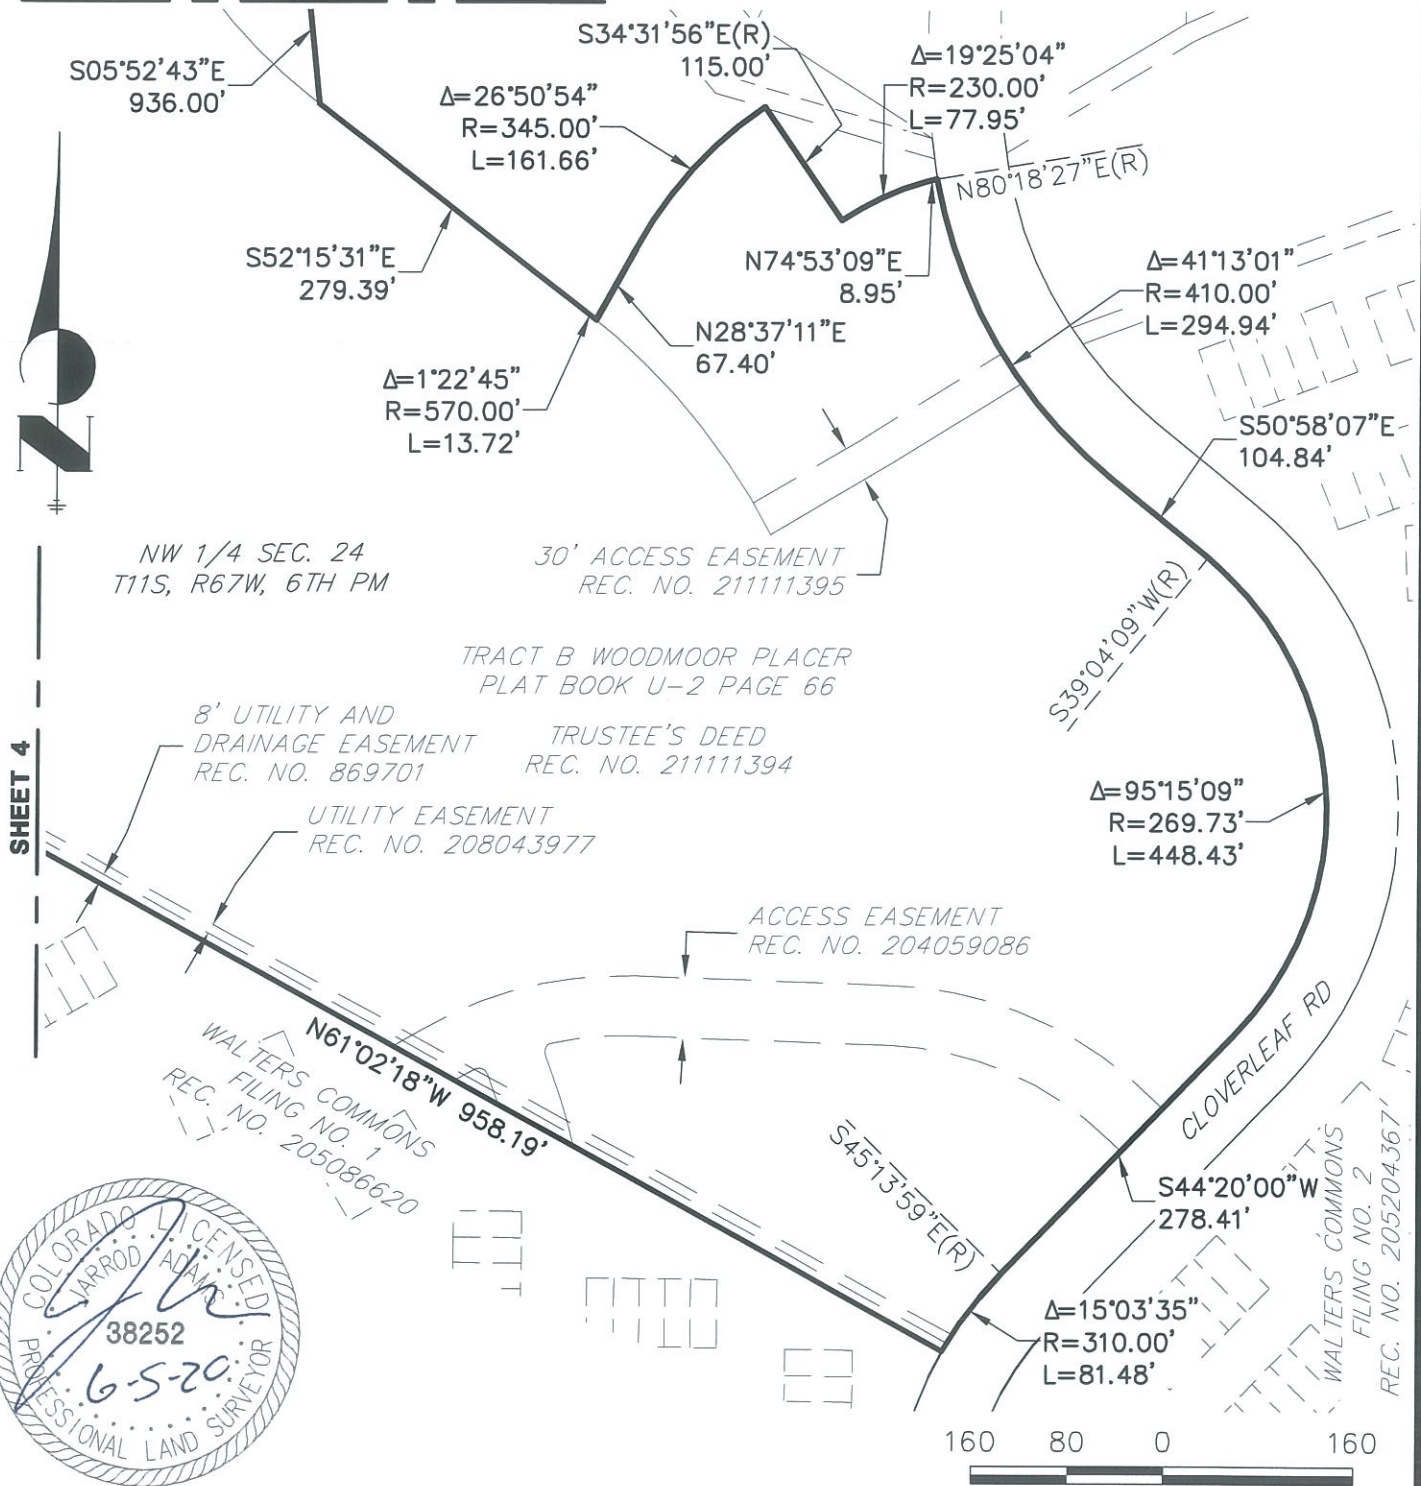 S05°52'43"E
936.00'
S34°31'56"E(R)
115.00'
Δ=19°25'04"
R=230.00'
L=77.95'
Δ=26°50'54"
R=345.00'
L=161.66'
N80°18'27"E(R)
S52°15'31"E
279.39'
N74°53'09"E
8.95'
Δ=41°13'01"
R=410.00'
L=294.94'
N28°37'11"E
67.40'
Δ=1°22'45"
R=570.00'
L=13.72'
S50°58'07"E
104.84'
N
NW 1/4 SEC. 24
T11S, R67W, 6TH PM
30' ACCESS EASEMENT
REC. NO. 211111395
S39°04'09"W(R)
TRACT B WOODMOOR PLACER
PLAT BOOK U-2 PAGE 66
8' UTILITY AND
DRAINAGE EASEMENT
REC. NO. 869701
TRUSTEE'S DEED
REC. NO. 211111394
SHEET 4
UTILITY EASEMENT
REC. NO. 208043977
Δ=95°15'09"
R=269.73'
L=448.43'
ACCESS EASEMENT
REC. NO. 204059086
N61°02'18"W 958.19'
WALTERS COMMONS
FILING NO. 1
REC. NO. 205086620
CLOVERLEAF RD
S45°13'59"E(R)
S44°20'00"W
278.41'
WALTERS COMMONS
FILING NO. 2
REC. NO. 205204367
Δ=15°03'35"
R=310.00'
L=81.48'
COLORADO LICENSED
JARROD ADAMS
38252
6-5-20
PROFESSIONAL LAND SURVEYOR
160 80 0 160